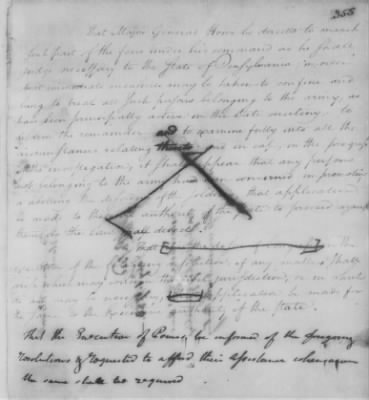 355
That Major General Howe be directed to march
such part of the force under his command as he shall
judge necessary to the State of Pensylvania, in order
that immediate measures may be taken to confine and
bring to trial all such persons belonging to the army, as
have been principally active in the late mutiny, to
disarm the remainder and to examine fully into all the
circumstances relating thereto and in case, in the progress
of the investigation, it shall appear that any persons
not belonging to the army have been concerned in promoting
or abetting the disorders of the soldiery, that application
be made to the executive authority of the State to proceed against
them, as the laws shall direct.
execution of the foregoing resolution, if any matters shall
arise which may civil jurisdiction, or in which
application be made for
the same to the Executive authority of the State.
That the Executive of Pennsa. be informed of the foregoing
resolutions & requested to afford their assistance whensoever
the same shall be required.